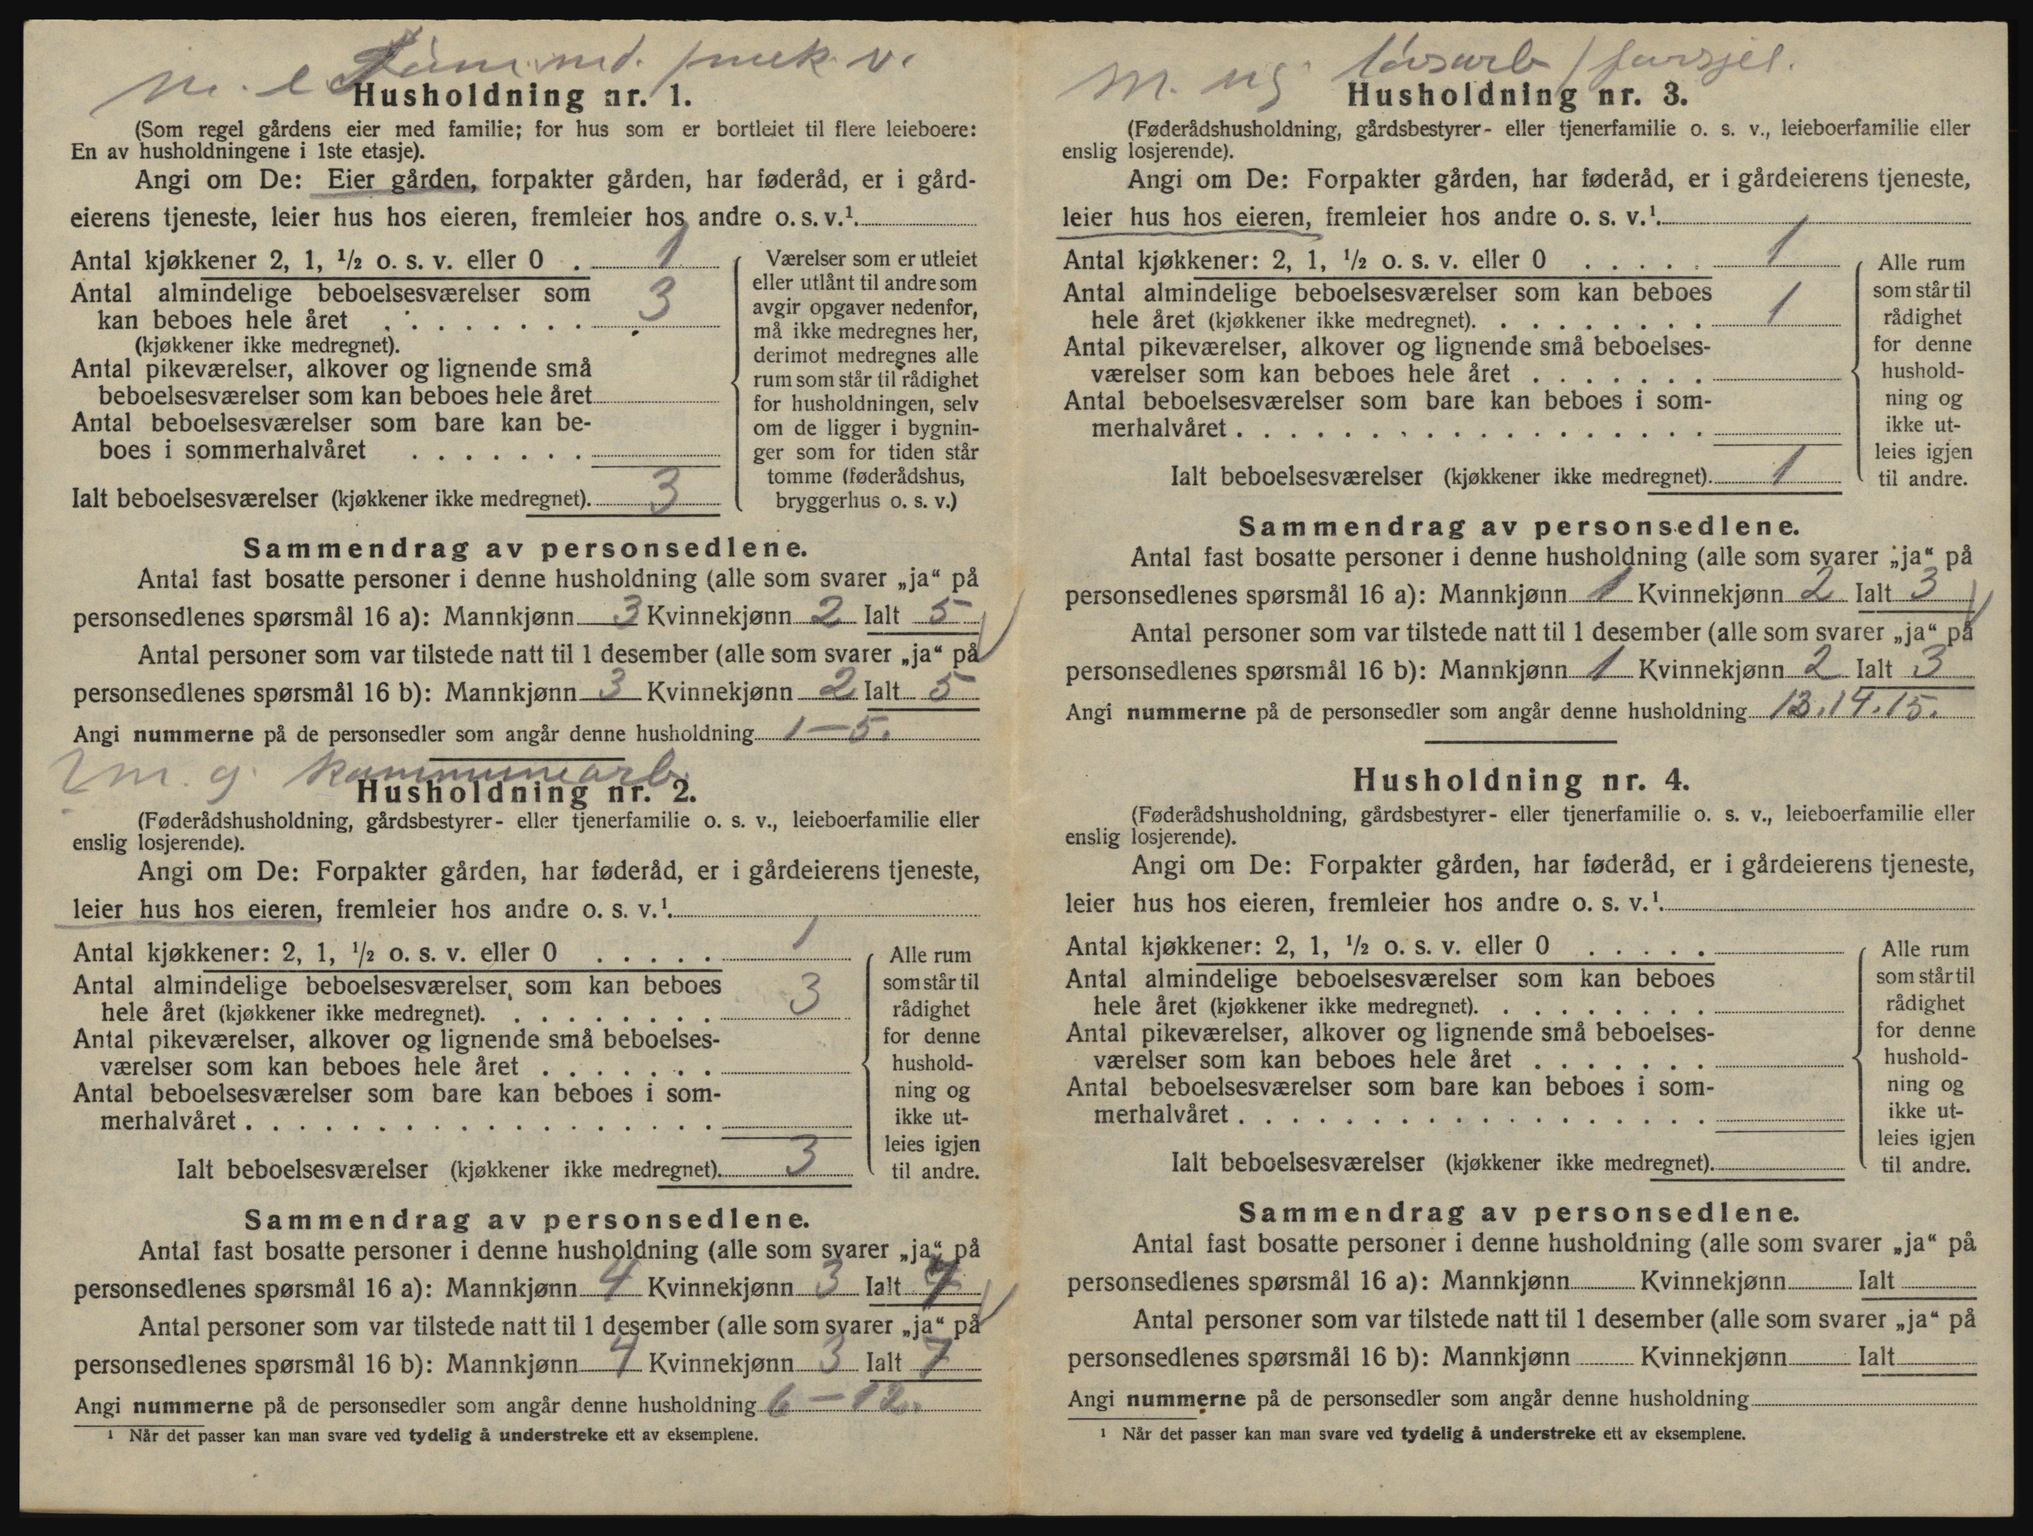 m. e
Husholdning nr. 1.
(Som regel gårdens eier med familie; for hus som er bortleiet til flere leieboere:
En av husholdningene i 1ste etasje).
Angi om De: Eier gården, forpakter gården, har føderåd, er i gård-
eierens tjeneste, leier hus hos eieren, fremleier hos andre o. s. v.¹.
Antal kjøkkener 2, 1, ½ o. s. v. eller 0 . 1
Antal almindelige beboelsesværelser som
kan beboes hele året . . . . . . . . 3
(kjøkkener ikke medregnet).
Antal pikeværelser, alkover og lignende små
beboelsesværelser som kan beboes hele året
Antal beboelsesværelser som bare kan be-
boes i sommerhalvåret . . . . . . .
Ialt beboelsesværelser (kjøkkener ikke medregnet). 3
Værelser som er utleiet
eller utlånt til andre som
avgir opgaver nedenfor,
må ikke medregnes her,
derimot medregnes alle
rum som står til rådighet
for husholdningen, selv
om de ligger i bygnin-
ger som for tiden står
tomme (føderådshus,
bryggerhus o. s. v.)
Sammendrag av personsedlene.
Antal fast bosatte personer i denne husholdning (alle som svarer „ja“ på
personsedlenes spørsmål 16 a): Mannkjønn 3 Kvinnekjønn 2 Ialt 5
Antal personer som var tilstede natt til 1 desember (alle som svarer „ja“ på
personsedlenes spørsmål 16 b): Mannkjønn 3 Kvinnekjønn 2 Ialt 5
Angi nummerne på de personsedler som angår denne husholdning 1-5.
m. g. kommunearb.
Husholdning nr. 2.
(Føderådshusholdning, gårdsbestyrer- eller tjenerfamilie o. s. v., leieboerfamilie eller
enslig losjerende).
Angi om De: Forpakter gården, har føderåd, er i gårdeierens tjeneste,
leier hus hos eieren, fremleier hos andre o. s. v.¹.
Antal kjøkkener: 2, 1, ½ o. s. v. eller 0 . . . . . 1
Antal almindelige beboelsesværelser som kan beboes
hele året (kjøkkener ikke medregnet). . . . . . . . . 3
Antal pikeværelser, alkover og lignende små beboelses-
værelser som kan beboes hele året . . . . . . .
Antal beboelsesværelser som bare kan beboes i som-
merhalvåret . . . . . . . . . . . . . . . . . .
Ialt beboelsesværelser (kjøkkener ikke medregnet). 3
Alle rum
som står til
rådighet
for denne
hushold-
ning og
ikke ut-
leies igjen
til andre.
Sammendrag av personsedlene.
Antal fast bosatte personer i denne husholdning (alle som svarer „ja“ på
personsedlenes spørsmål 16 a): Mannkjønn 4 Kvinnekjønn 3 Ialt 7
Antal personer som var tilstede natt til 1 desember (alle som svarer „ja“ på
personsedlenes spørsmål 16 b): Mannkjønn 4 Kvinnekjønn 3 Ialt 7
Angi nummerne på de personsedler som angår denne husholdning 6-12.
¹ Når det passer kan man svare ved tydelig å understreke ett av eksemplene.
m. ug løsarb / forsjel.
Husholdning nr. 3.
(Føderådshusholdning, gårdsbestyrer- eller tjenerfamilie o. s. v., leieboerfamilie eller
enslig losjerende).
Angi om De: Forpakter gården, har føderåd, er i gårdeierens tjeneste,
leier hus hos eieren, fremleier hos andre o. s. v.¹.
Antal kjøkkener: 2, 1, ½ o. s. v. eller 0 . . . . . 1
Antal almindelige beboelsesværelser som kan beboes
hele året (kjøkkener ikke medregnet). . . . . . . . . 1
Antal pikeværelser, alkover og lignende små beboelses-
værelser som kan beboes hele året . . . . . . .
Antal beboelsesværelser som bare kan beboes i som-
merhalvåret . . . . . . . . . . . . . . . . . .
Ialt beboelsesværelser (kjøkkener ikke medregnet). 1
Alle rum
som står til
rådighet
for denne
hushold-
ning og
ikke ut-
leies igjen
til andre.
Sammendrag av personsedlene.
Antal fast bosatte personer i denne husholdning (alle som svarer „ja“ på
personsedlenes spørsmål 16 a): Mannkjønn 1 Kvinnekjønn 2 Ialt 3
Antal personer som var tilstede natt til 1 desember (alle som svarer „ja“ på
personsedlenes spørsmål 16 b): Mannkjønn 1 Kvinnekjønn 2 Ialt 3
Angi nummerne på de personsedler som angår denne husholdning 13.14.15.
Husholdning nr. 4.
(Føderådshusholdning, gårdsbestyrer- eller tjenerfamilie o. s. v., leieboerfamilie eller
enslig losjerende).
Angi om De: Forpakter gården, har føderåd, er i gårdeierens tjeneste,
leier hus hos eieren, fremleier hos andre o. s. v.¹.
Antal kjøkkener: 2, 1, ½ o. s. v. eller 0 . . . . .
Antal almindelige beboelsesværelser som kan beboes
hele året (kjøkkener ikke medregnet). . . . . . . . .
Antal pikeværelser, alkover og lignende små beboelses-
værelser som kan beboes hele året . . . . . . .
Antal beboelsesværelser som bare kan beboes i som-
merhalvåret . . . . . . . . . . . . . . . . . .
Ialt beboelsesværelser (kjøkkener ikke medregnet).
Alle rum
som står til
rådighet
for denne
hushold-
ning og
ikke ut-
leies igjen
til andre.
Sammendrag av personsedlene.
Antal fast bosatte personer i denne husholdning (alle som svarer „ja“ på
personsedlenes spørsmål 16 a): Mannkjønn Kvinnekjønn Ialt
Antal personer som var tilstede natt til 1 desember (alle som svarer „ja“ på
personsedlenes spørsmål 16 b): Mannkjønn Kvinnekjønn Ialt
Angi nummerne på de personsedler som angår denne husholdning
¹ Når det passer kan man svare ved tydelig å understreke ett av eksemplene.